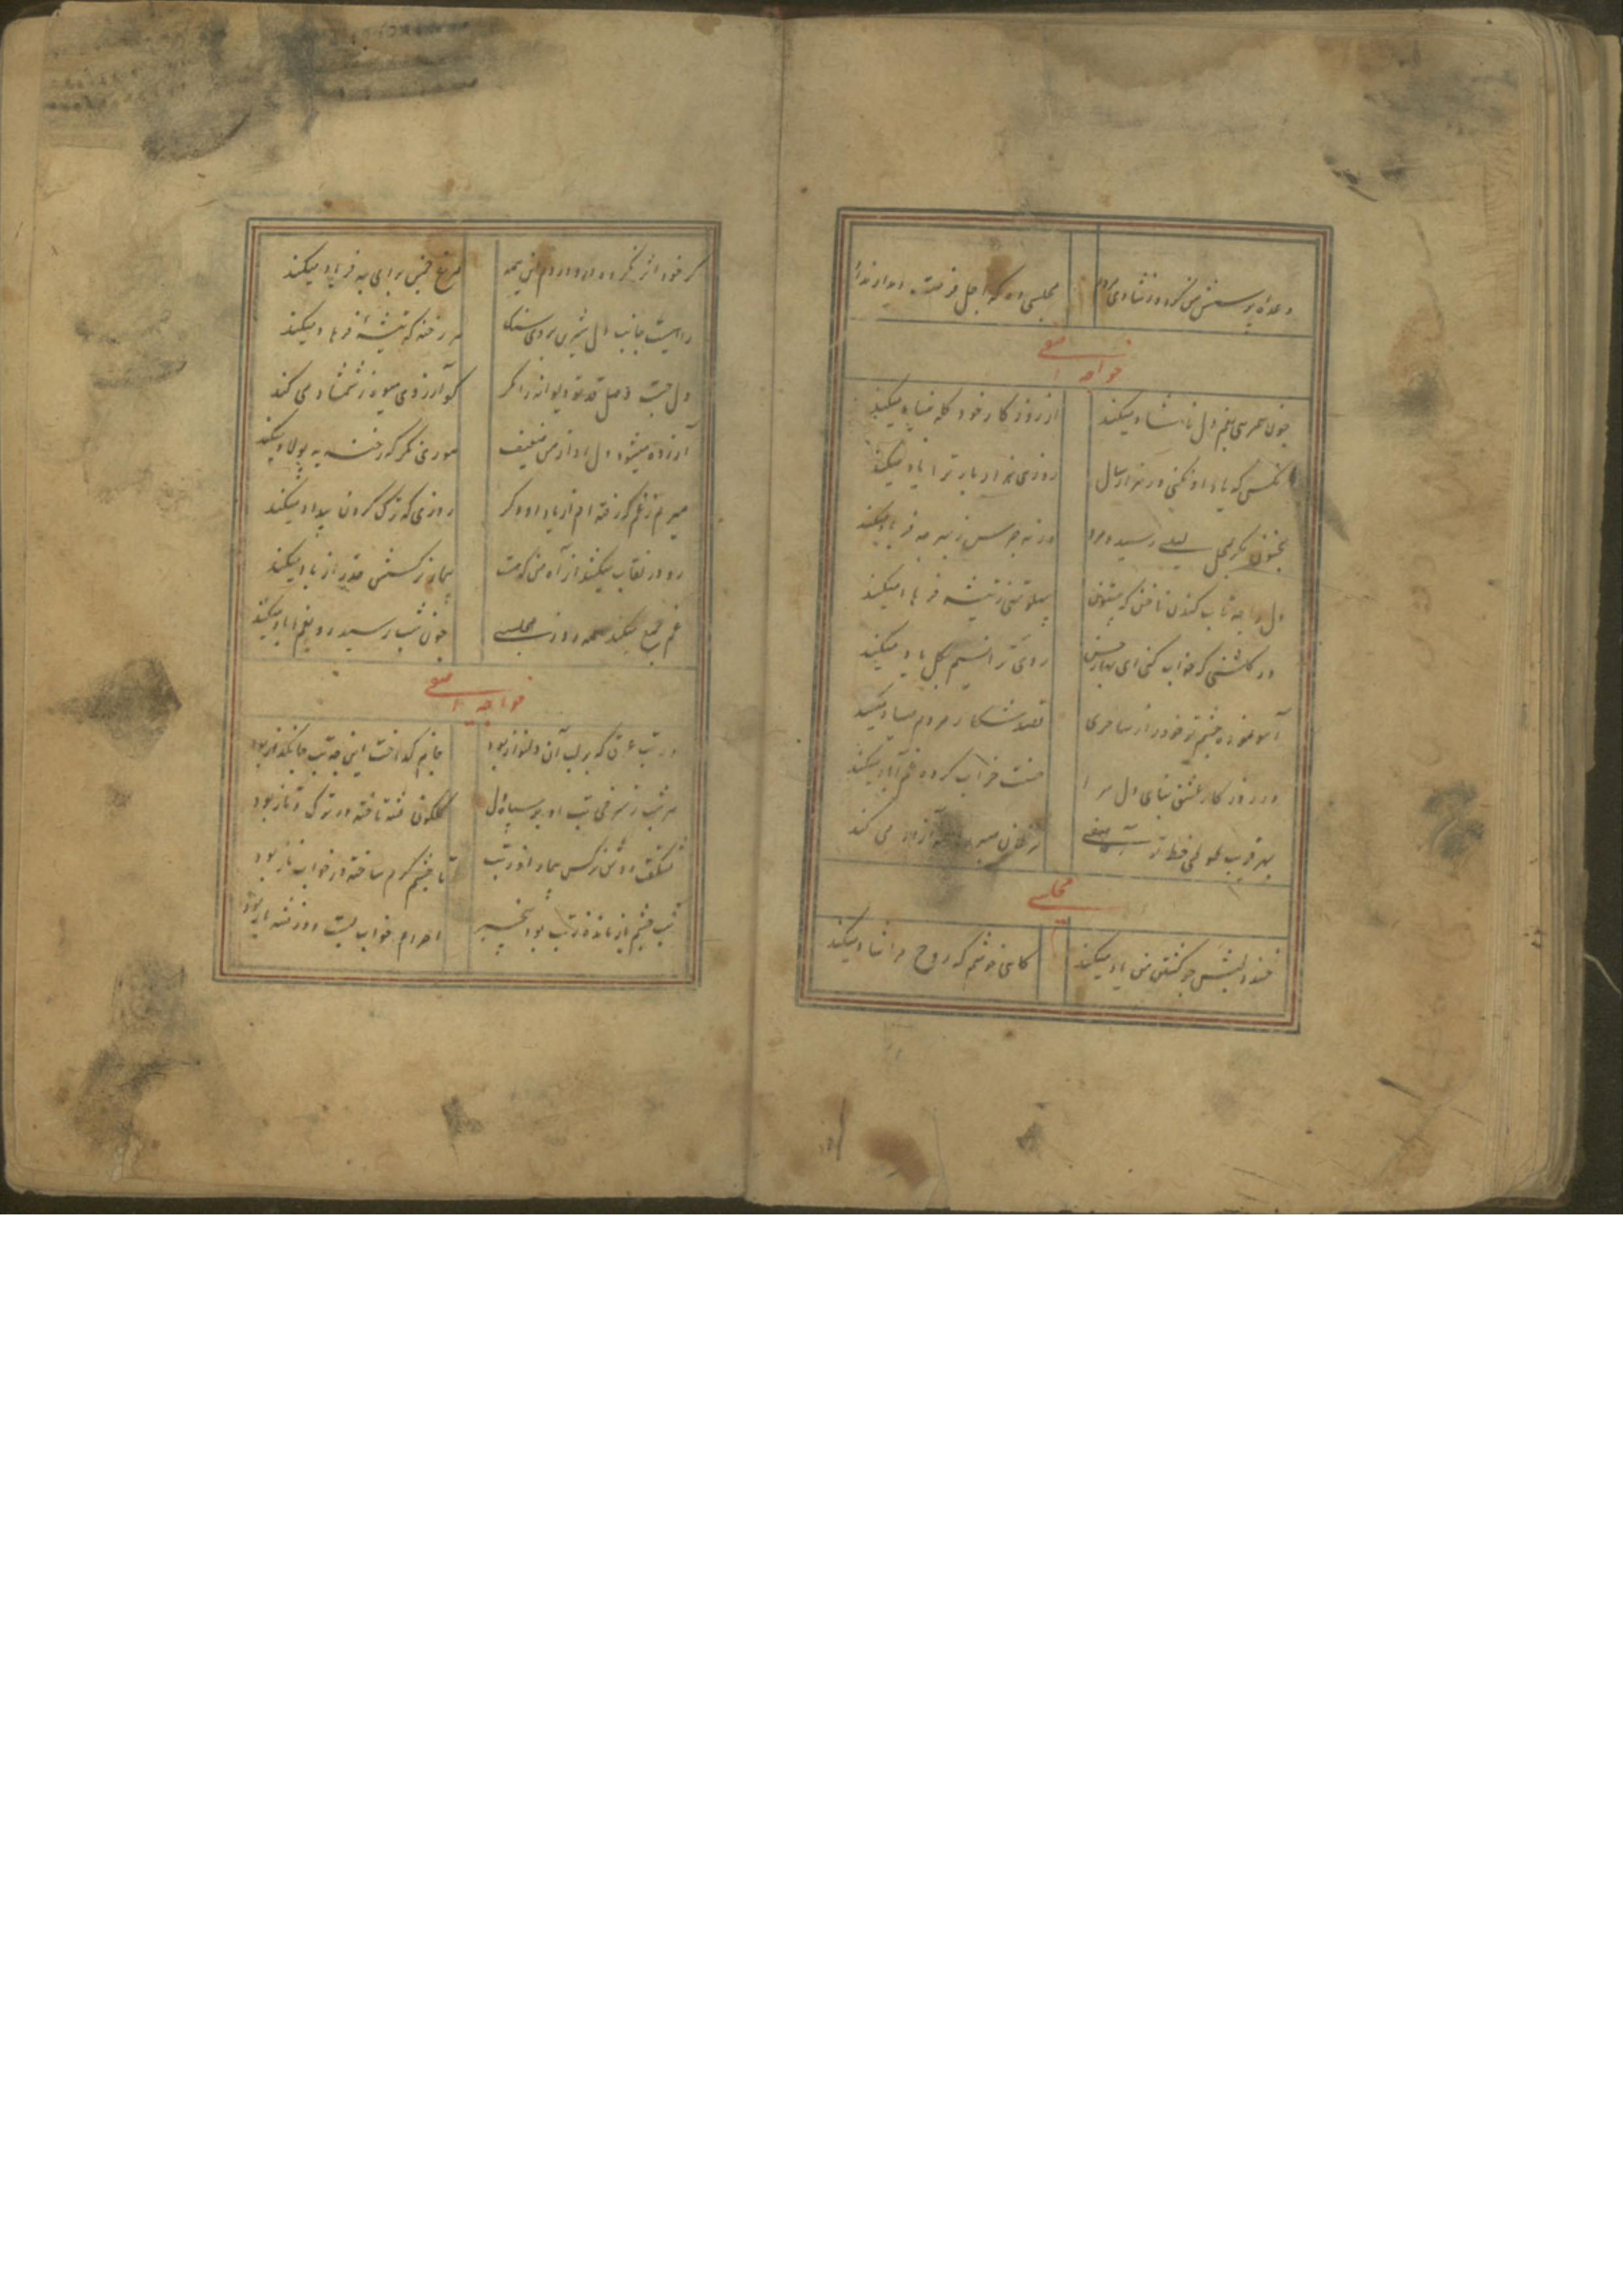 وعده پرسش من کرد و ز شادی مردم
مجلسی داد که اجل فرصت
خواجه آصفی
چون سر بی غم دل ناشاد میکند
از روزگار خود گله بنیاد میکند
آنکس که یاد او نکنی در هزار سال
روزی هزار بار ترا یاد میکند
مجنون مگر بمحمل لیلی رسید و مرد
ورنه جرس ز بهر چه فریاد میکند
دل را چه تاب کندن ناخن که بیستون
پهلو تهی ز تیشه فرهاد میکند
در گلشنی که خواب کنی ای بهار حسن
روی ترا نسیم گل باد میکند
آموخته چشم تو خود را ز ساحری
قصد شکار مردم صیاد میکند
در روزگار عشق بنای دل مرا
محنت خراب کرده غم آباد میکند
بهر فریب طوطی خط تو آصفی
مرغان آزاد می کند
مجلسی
خندد لبش چو کشتن من یاد میکند
کامی خوشم که روح مرا شاد میکند
گر خود اثر نکرده درو دردم این همه
مرغ چمن برای چه فریاد میکند
راهیست جانب دل شیرین بروی سنگ
هر رخنه که تیشه فرهاد میکند
دل جست وصل قد تو دیوانه را نگر
کو آرزوی میوه ز شمشاد می کند
آزرده میشود دل او از من ضعیف
موری نگر که رخنه به پولاد میکند
میرم ز غم که رفته ام از یاد او و گر
روزی که ترک کردن بیداد میکند
رو در نقاب میکند از آه من که مست
بیمار نرگسش حذر از باد میکند
غم جمع میکند همه روز مجلسی
چون شب رسید رو بغم آباد میکند
خواجه آصفی
در تب عرق که بر لب آن دلنواز بود
جانم گداخت این چه تب جانگداز بود
هر شب ز گرمی تب او بر سپاه دل
گلگون فتنه تافته در ترک و تاز بود
نشکفت دوش نرگس بیمار او ز تب
تا چشم گرم ساخته در خواب ناز بود
شب چشم باز مانده ز تب بود بیخبر
احرام خواب بست و در فتنه باز بود